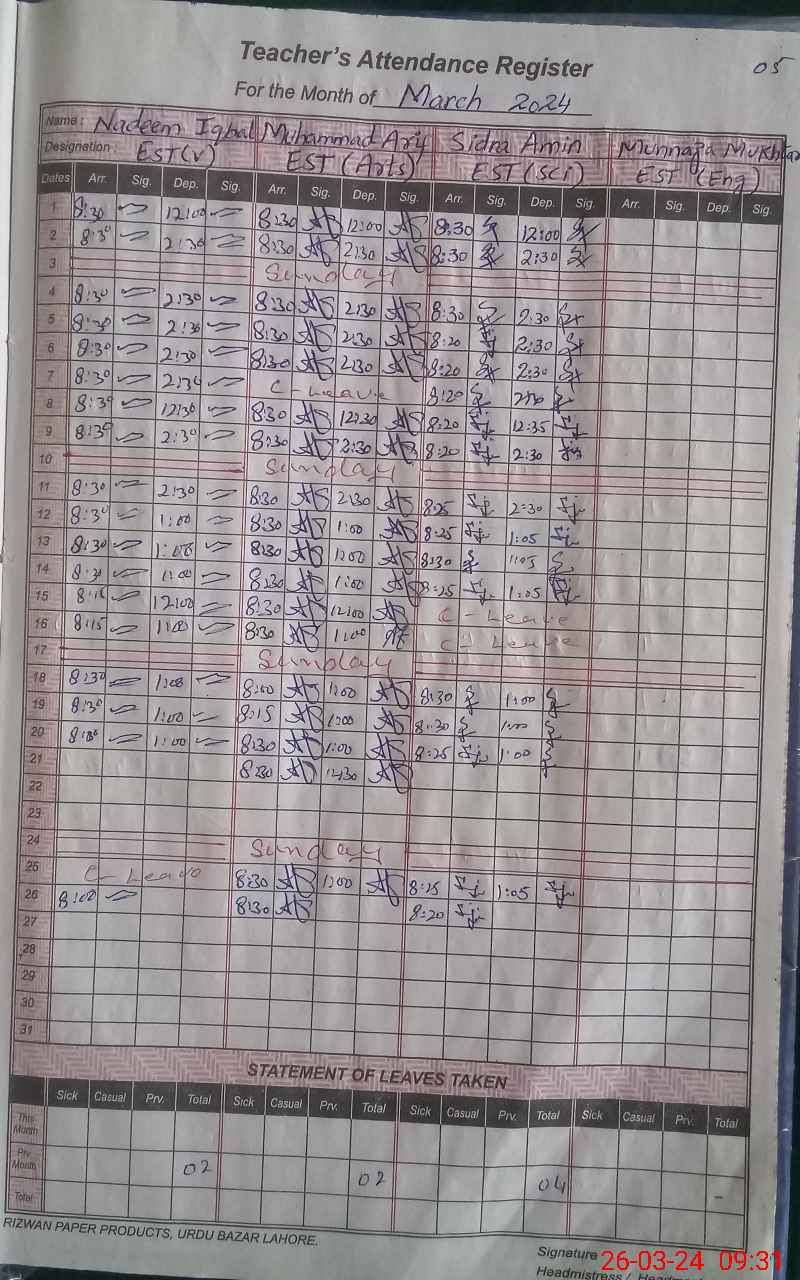 Teacher's Attendance Register
05
For the Month of March 2024
Name: Nadeem Iqbal Muhammad Sidra Amin Munnaza Mukhtar
Designation: EST(V) EST (Arts) EST (Sci) EST (Eng)
Dates Arr. Sig. Dep. Sig. Arr. Sig. Dep. Sig. Arr. Sig. Dep. Sig. Arr. Sig. Dep. Sig.
1 8:30 12:00 8:30 12:00 8:30 12:00
2 8:30 2:30 8:30 2:30 8:30 2:30
3 Sunday
4 8:30 2:30 8:30 2:30 8:30 2:30
5 8:30 2:30 8:30 2:30 8:20 2:30
6 8:30 2:30 8:30 2:30 8:20 2:30
7 8:30 2:30 C-Leave 8:20
8 8:30 12:30 8:30 12:30 8:20 12:35
9 8:30 2:30 8:30 2:30 8:20 2:30
10 Sunday
11 8:30 2:30 8:30 2:30 8:25 2:30
12 8:30 1:00 8:30 1:00 8:25 1:05
13 8:30 1:00 8:30 1:00 8:30 1:05
14 8:30 1:00 8:30 1:00 8:25 1:05
15 8:15 12:00 8:30 12:00 C-Leave
16 8:15 1:00 8:30 1:00 C-Leave
17 Sunday
18 8:30 1:00 8:00 1:00 8:30 1:00
19 8:30 1:00 8:15 1:00 8:30 1:00
20 1:00 8:30 1:00 8:25 1:00
21 8:30 12:30
22
23
24 Sunday
25 C-Leave 8:30 1:00 8:25 1:05
26 8:00 8:30 8:20
27
28
29
30
31
STATEMENT OF LEAVES TAKEN
Sick Casual Prv. Total Sick Casual Prv. Total Sick Casual Prv. Total Sick Casual Prv. Total
This Month
Prv. Month 02 02 04 -
Total
RIZWAN PAPER PRODUCTS, URDU BAZAR LAHORE.
Signature
Headmistress /
26-03-24 09:31